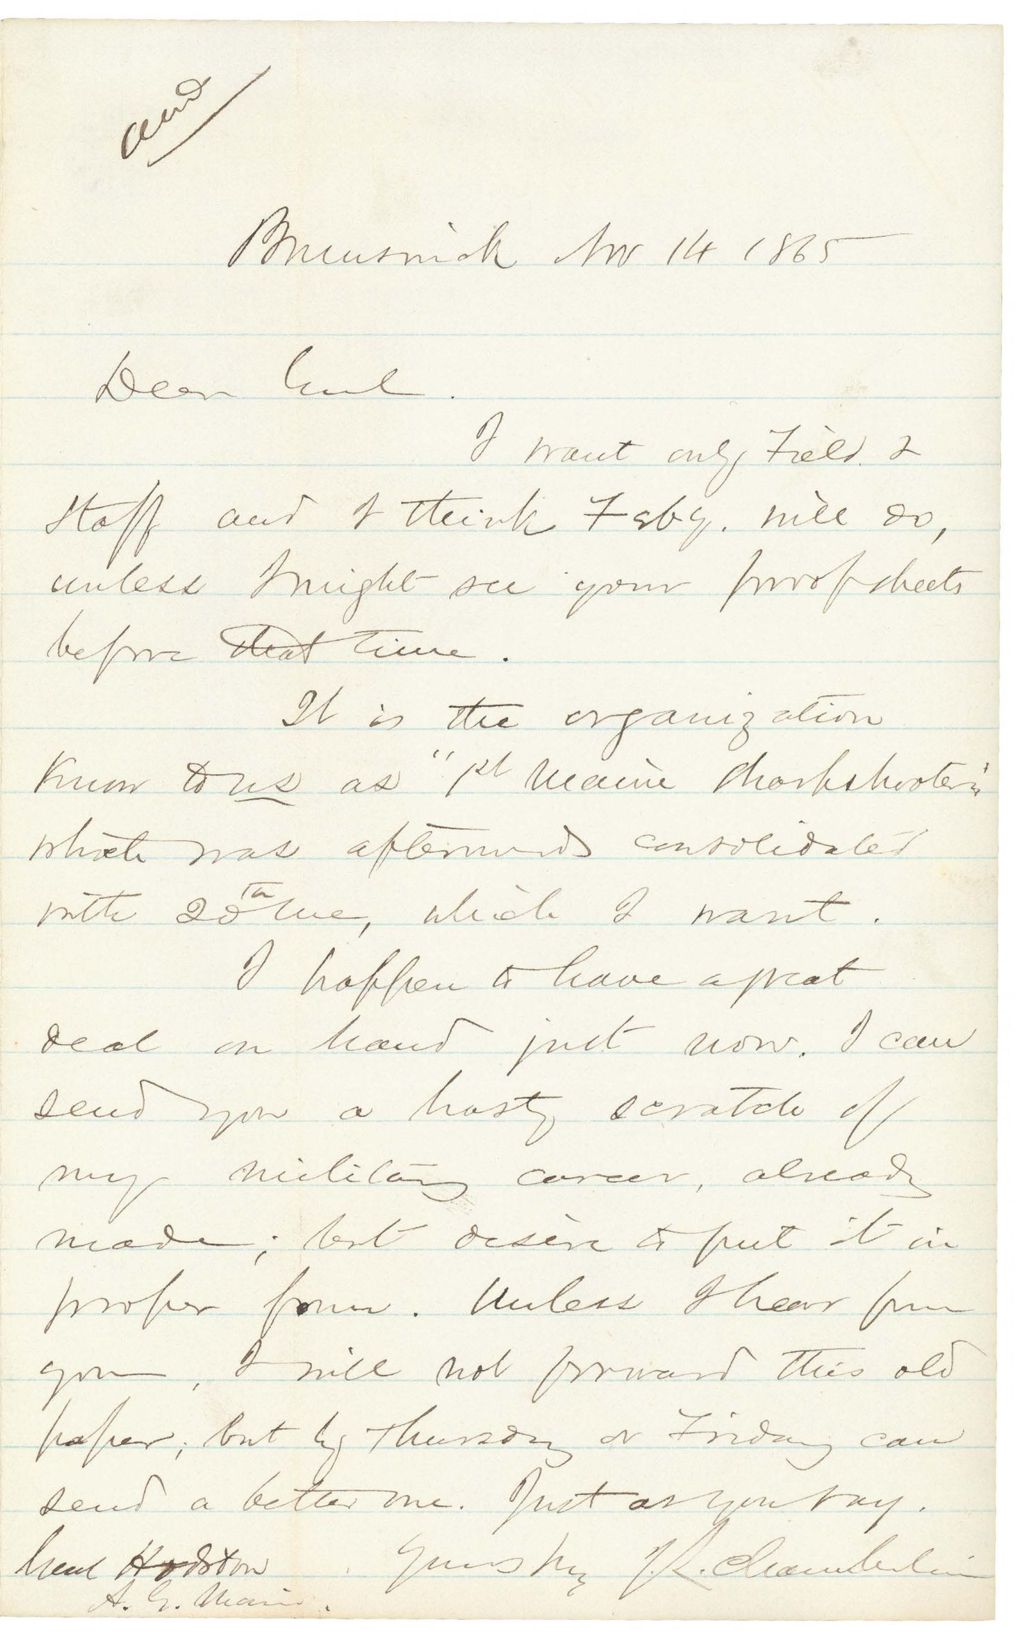 and
Brunswick Nov 14 1865
Dear Genl.
I want only Field &
Staff and I think Feby. will do,
unless I might see your proof sheets
before that time.
It is the organization
know to us as "1st Maine Sharpshooters"
which was afterwards consolidated
with 20th Me, which I want.
I happen to have a great
deal on hand just now. I can
send you a hasty scratch of
my military career, already
made; but desire to put it in
proper form. Unless I hear from
you, I will not forward this old
paper; but by Thursday or Friday can
send a better one. Just as you say.
Genl Hodsdon
Yours truly J. L. Chamberlain
A. G. Maine.